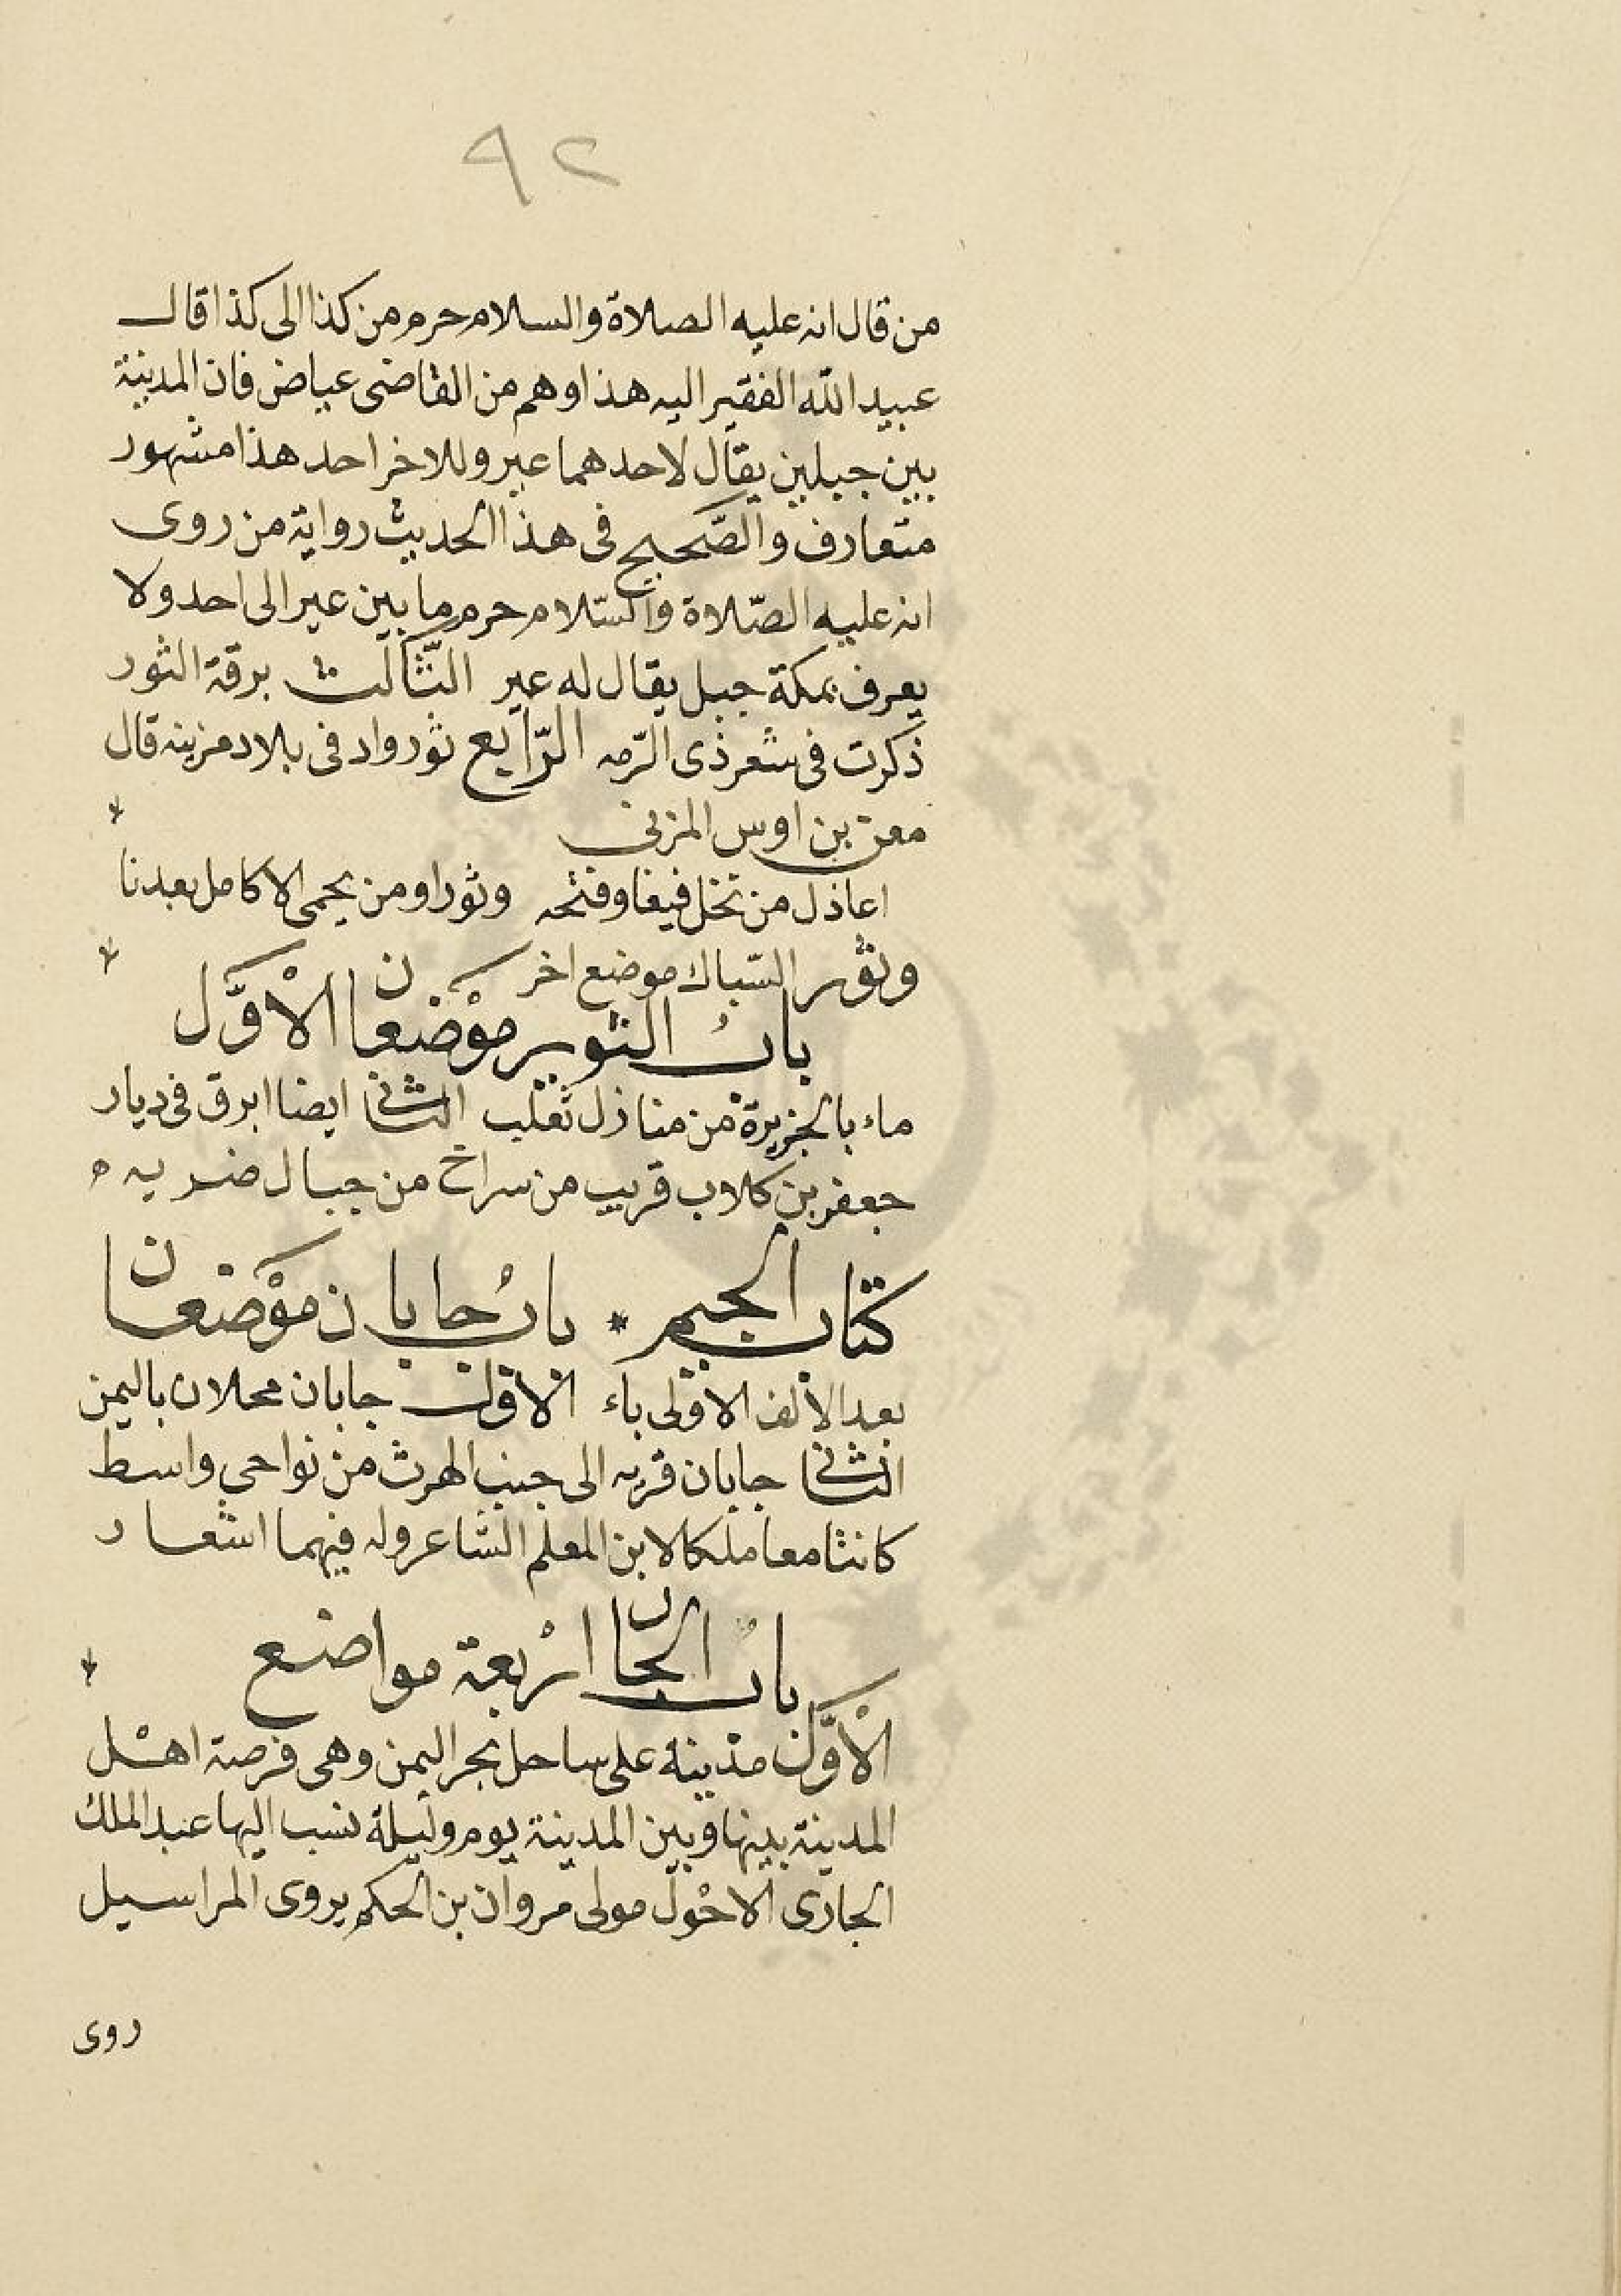 ٩٢
من قال انه عليه الصلاة والسلام حرم من كذا الى كذا قال
عبيد الله الفقير اليه هذا وهم من القاضى عياض فان المدينة
بين جبلين يقال لاحدهما عير وللاخر احد هذا مشهور
متعارف والصّحيح فى هذا الحديث رواية من روى
انه عليه الصّلاة والسّلام حرم ما بين عير الى احد ولا
يعرف بمكة جبل يقال له عير الثّالث برقة الثور
ذكرت فى شعر ذى الرّمه الرّابع ثور واد فى بلاد مزينه قال
معن بن اوس المزنى
اعاذل من تخل فيفا وفتحه وثورا ومن يحمى الاكامل بعدنا
وثور السّباك موضع اخر
باب الثوير موْضعان الأوَّل
ماء بالجزيرة من منازل تغلب الثانى ايضا ابرق فى ديار
جعفر بن كلاب قريب من سراخ من جبال ضريه ه
كتاب الجيم * باب جابان موْضعان
بعد الألف الاولى باء الاول جابان محلان باليمن
الثانى جابان قريه الى جنب الهرث من نواحى واسط
كانتا معا ملكا لابن المعلم الشاعر وله فيهما اشعار
باب الجار ارْبعة مواضع
الأوَّل مدينه على ساحل بحر اليمن وهى فرصة اهْل
المدينة بينها وبين المدينة يوم وليلة نسب اليها عبد الملك
الجارى الاحْول مولى مروان بن الحكم يروى المراسيل
روى